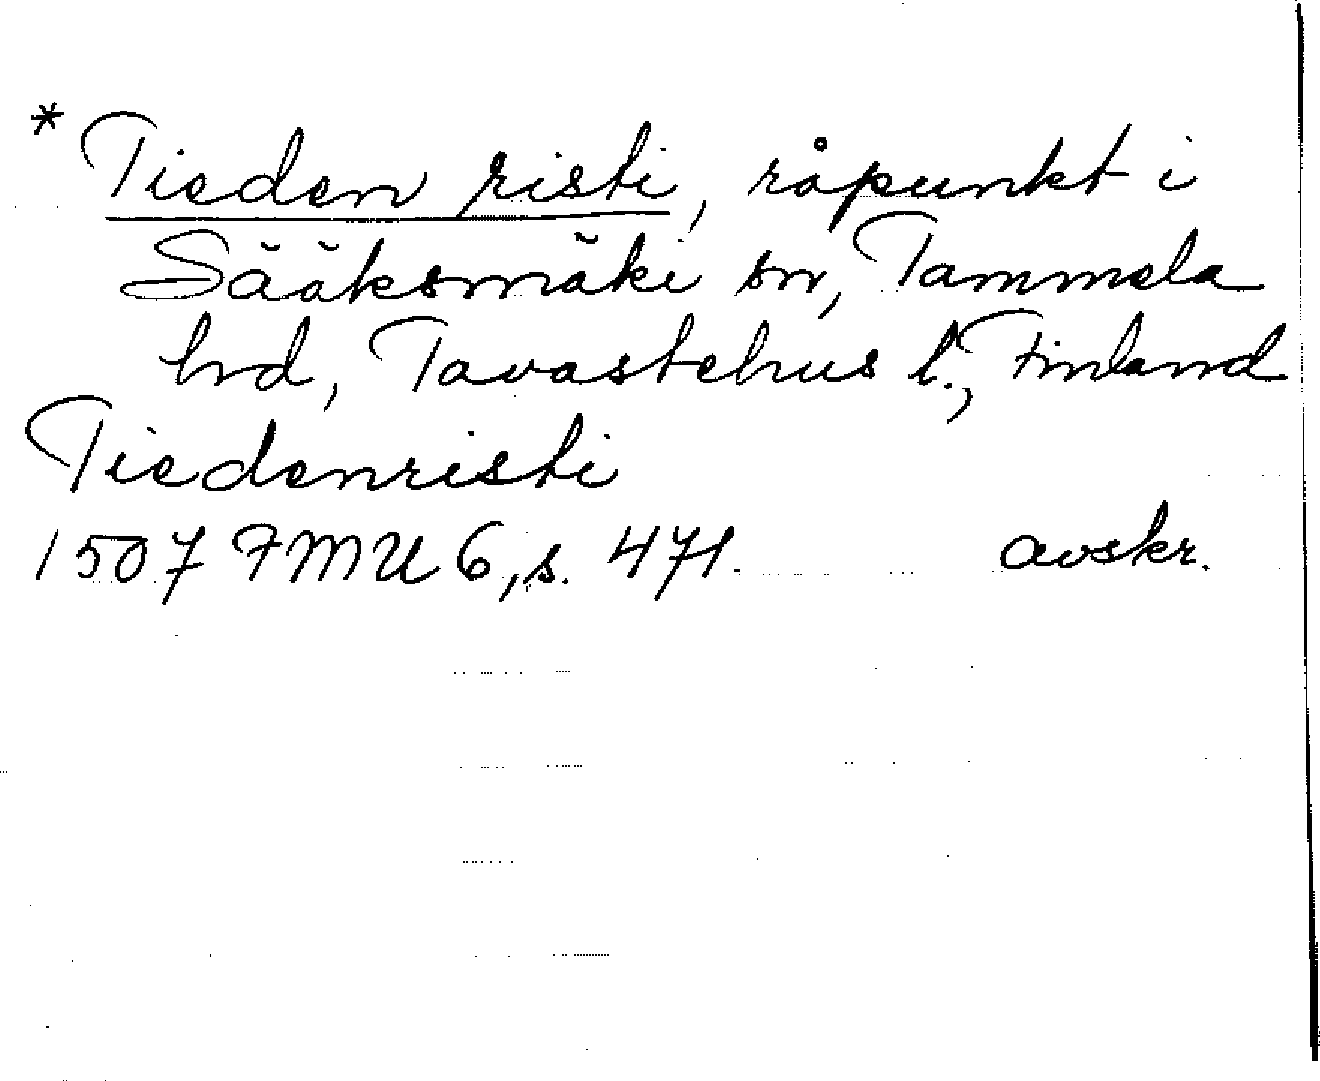 * Tieden risti, råpunkt i
Sääksmäki sn, Tammela
hrd, Tavastehus l., Finland
Tiedenristi
1507 FMU 6, s. 471. avskr.